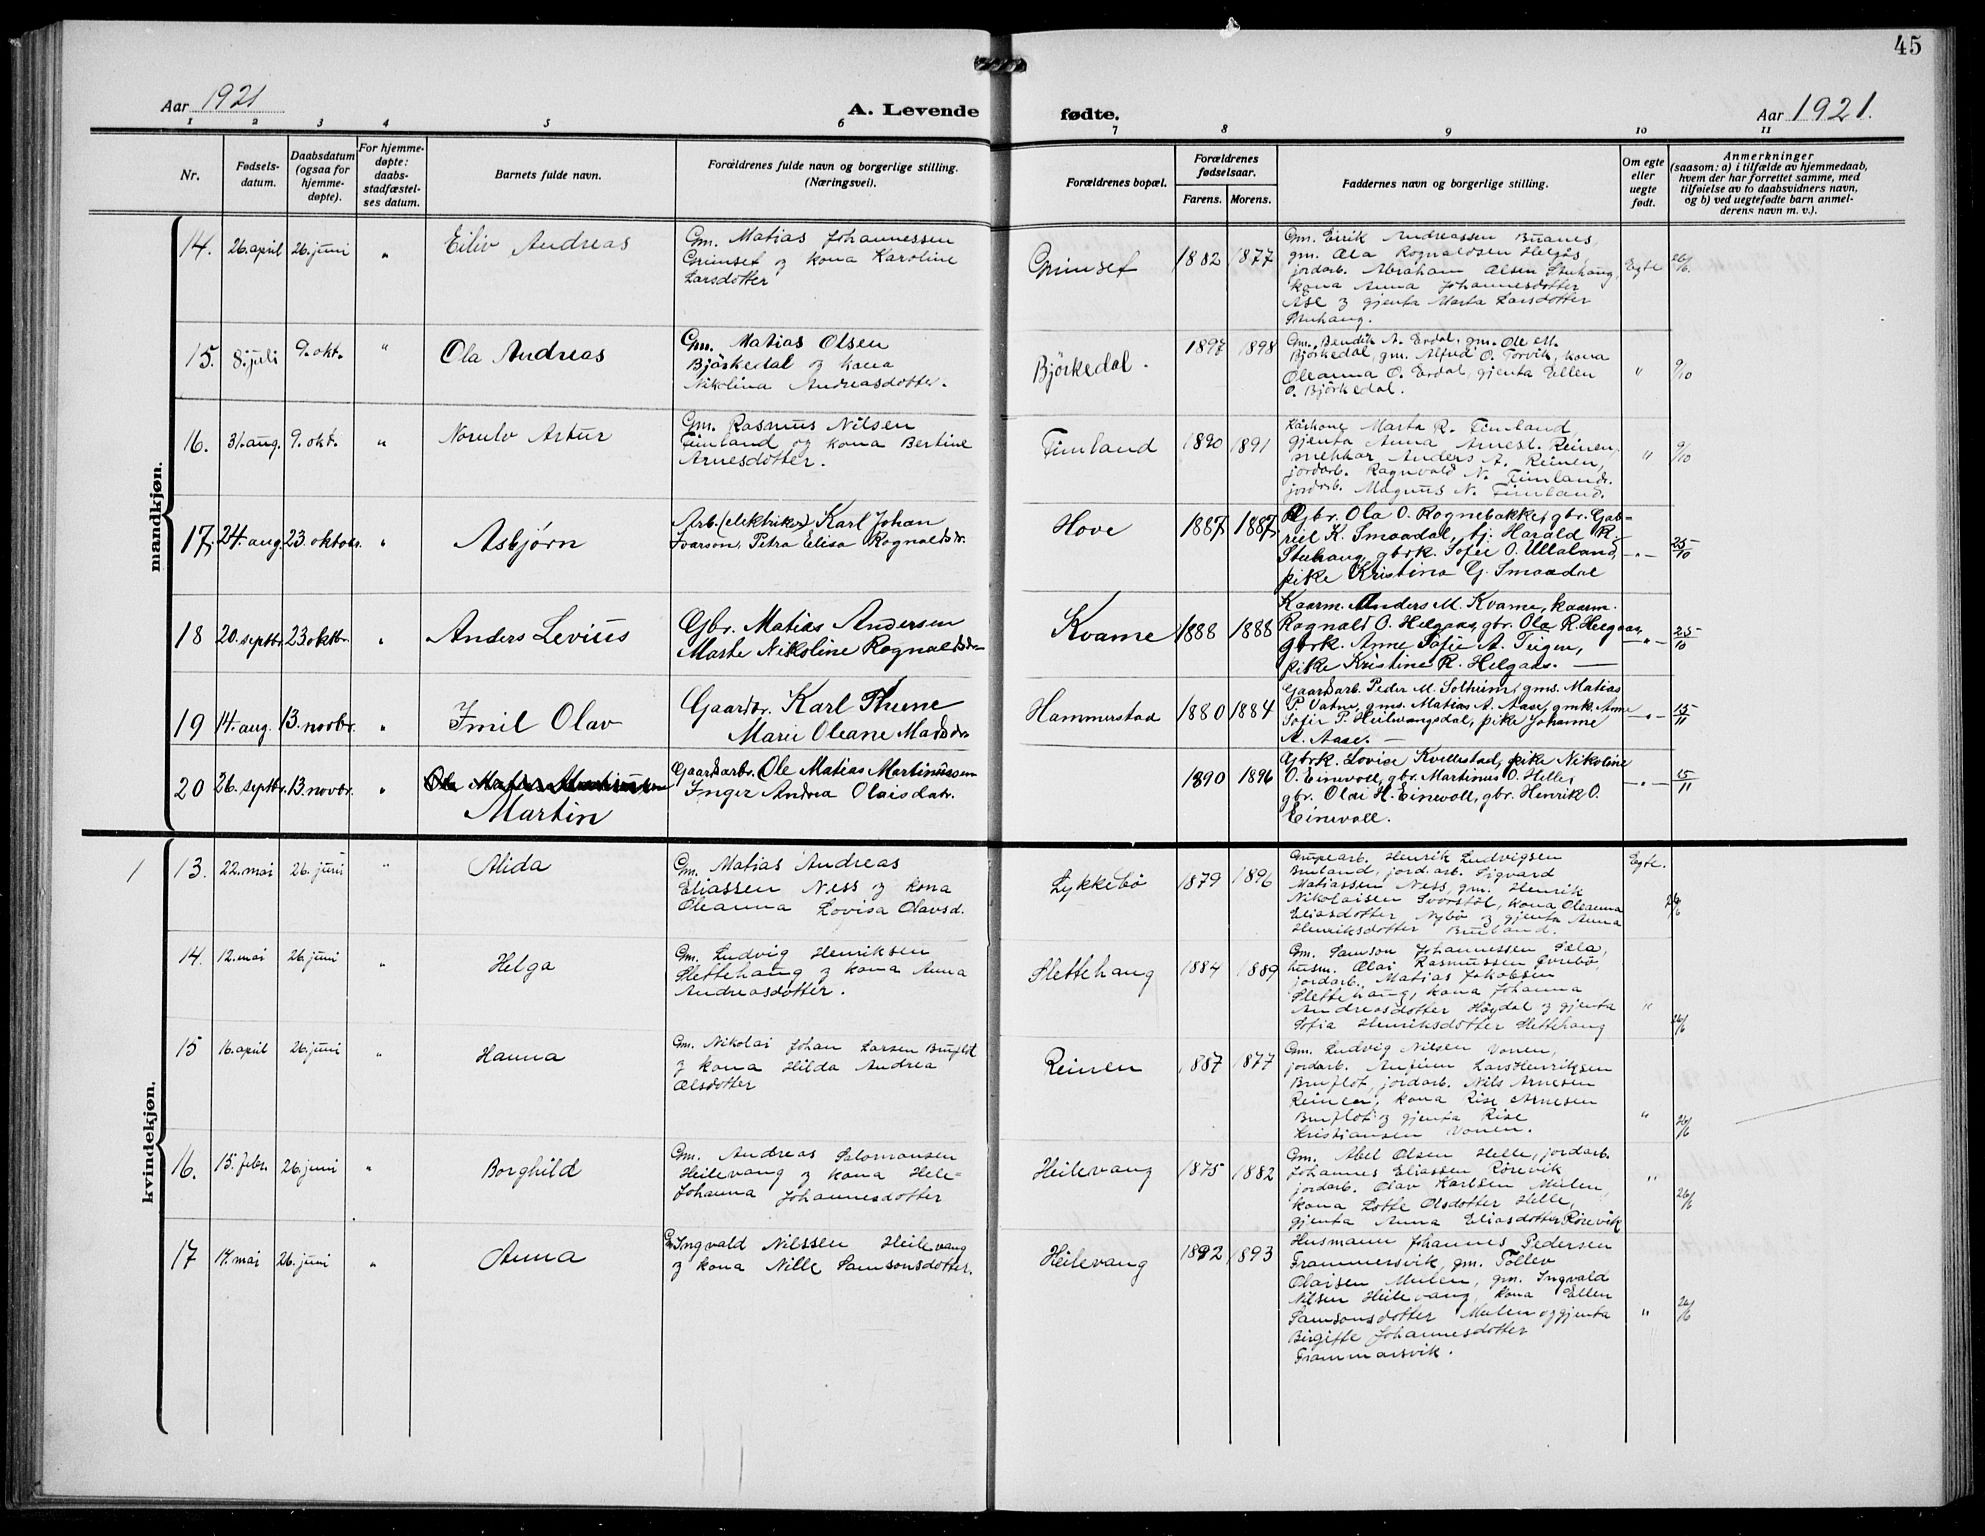 45
Aar 1921
A. Levende
fødte.
Aar 1921.
1 2 3 4 5 6 7 8 9 10 11
Nr.
Fødsels-
datum.
Daabsdatum
(ogsaa for
hjemme-
døpte).
For hjemme-
døpte:
daabs-
stadfæstel-
ses datum.
Barnets fulde navn.
Forældrenes fulde navn og borgerlige stilling.
(Næringsvei).
Forældrenes bopæl.
Forældrenes
fødselsaar.
Farens. Morens.
Faddernes navn og borgerlige stilling.
Om egte
eller
uegte
født.
Anmerkninger
(saasom: a) i tilfælde av hjemmedaab,
hvem der har forrettet samme, med
tilføielse av to daabsvidners navn,
og b) ved uegtefødte barn anmel-
derens navn m. v.).
mandkjøn.
14. 26. april 26. juni " Eiliv Andreas
Gm. Matias Johannessen
Grimset og kona Karoline
Larsdotter
Grimset 1882 1877
Gm. Eirik Andreassen Buanes,
gm. Ola Rognaldsen Helgås,
jordarb. Abraham Olsen Stuhaug,
kona Anna Johannesdotter
Åse og gjenta Marta Larsdotter
Stuhaug.
Egte 26/6
15. 8. juli 9. okt. " Ola Andreas
Gm. Matias Olsen
Bjørkedal og kona
Nikolina Andreasdotter.
Bjørkedal. 1897 1898
Gm. Bendik A. Erdal, gm. Ole M.
Bjørkedal, gm. Alfred O. Torvik, kona
Oleanna O. Erdal, gjenta Ellen
O. Bjørkedal.
" 9/10
16. 31. aug. 9. okt. " Norulv Artur
Gm. Rasmus Nilsen
Timland og kona Bertine
Arnesdotter.
Timland 1890 1891
Kårkone Marta R. Timland,
gjenta Anna Arnesd. Reinen,
snekkar Anders A. Reinen,
jordarb. Ragnvald N. Timland,
jordarb. Magnus N. Timland.
" 9/10
17. 24. aug. 23. oktobr. " Asbjørn
Arb. (elektriker) Karl Johan
Ivarson, Petra Elisa Rognaldsdr.
Hove 1887 1887
Gbr. Ola O. Rognebakke, gbr. Gab-
riel K. Smaadal, tj. Harald R.
Stuhaug, gbrk. Sofie O. Ullaland,
pike Kristina G. Smaadal
—"— 25/10
18 20. septbr. 23. oktbr. " Anders Levius
Gbr. Matias Andersen
Marte Nikoline Rognaldsdr.
Kvame 1888 1888
Kaarm. Anders M. Kvame, kaarm.
Rognald O. Helgaas, gbr. Ola R. Helgaas,
gbrk. Anne Sofie A. Teigen,
pike Kristine R. Helgaas. —
—"— 25/10
19 14. aug. 13. novbr. " Emil Olav
Gaardbr. Karl Thune
Marie Oleane Madsdr.
Hammerstad 1880 1884
Gaardsarb. Peder M. Solheim, gms. Matias
P. Vatne, gms. Matias A. Aase, gmk. Anne
Sofie P. Heilevangsdal, pike Johanne
A. Aase. —
—"— 15/11
20 26. septbr. 13. novbr. "
Martin
Gaardsarb. Ole Matias Martinussen
Inger Andrea Olaisdatr.
1890 1896
Gbrk. Lovise Kvellestad, pike Nikoline
O. Einevoll, gbr. Martinus O. Helle,
gbr. Olai H. Einevoll, gbr. Henrik O.
Einevoll.
—"— 15/11
kvindekjøn.
1 13. 22. mai 26. juni " Alida
Gm. Matias Andreas
Eliassen Ness og kona
Oleanna Lovisa Olavsd.
Lykkebø 1879 1896
Grupearb. Henrik Ludvigsen
Buland, jord.arb. Sigvard
Matiassen Ness, gm. Henrik
Nikolaisen Svorstøl, kona Oleanna
Eliasdotter Nybø og gjenta Anna
Henriksdotter Buland.
Egte. 26/6
14. 12. mai 26. juni " Helga
Gm. Ludvig Henriksen
Slettehaug og kona Anna
Andreasdotter.
Slettehaug 1884 1889
Gm. Samson Johannessen Sæla,
husm. Olai Rasmussen Øvrebø,
jordarb. Matias Jakobsen
Slettehaug, kona Johanna
Andreasdotter Høydal og gjenta
Sofia Henriksdotter Slettehaug
" 26/6
15 16. april 26. juni " Hanna
Gm. Nikolai Johan Larsen Bruflot
og kona Hilda Andrea
Olsdotter
Reinen 1887 1877
Gm. Ludvig Nilsen Vonen,
jordarb. Anfinn Lars Henriksen
Bruflot, jordarb. Nils Arnesen
Reinen, kona Rise Arnesen
Bruflot og gjenta Rise
Kristiansen Vonen.
" 26/6
16. 15. febr. 26. juni " Borghild
Gm. Andreas Salomonsen
Heilevang og kona Hele-
Johanna Johannesdotter
Heilevang 1875 1882
Gm. Abel Olsen Helle, jordarb.
Johannes Eliassen Rørevik
jordarb. Olav Karlsen Mulen,
kona Lotte Olsdotter Helle,
gjenta Anna Eliasdotter Rørevik
" 26/6
17 14. mai 26. juni " Anna
Gm. Ingvald Nilssen Heilevang
og kona Nille Samsonsdotter.
Heilevang 1892 1893
Husmann Johannes Pedersen
Frammersvik, gm. Tollev
Olaisen Mulen, gm. Ingvald
Nilsen Heilevang, kona Ellen
Samsonsdotter Mulen og gjenta
Birgitte Johannesdotter
Frammarsvik.
" 26/6